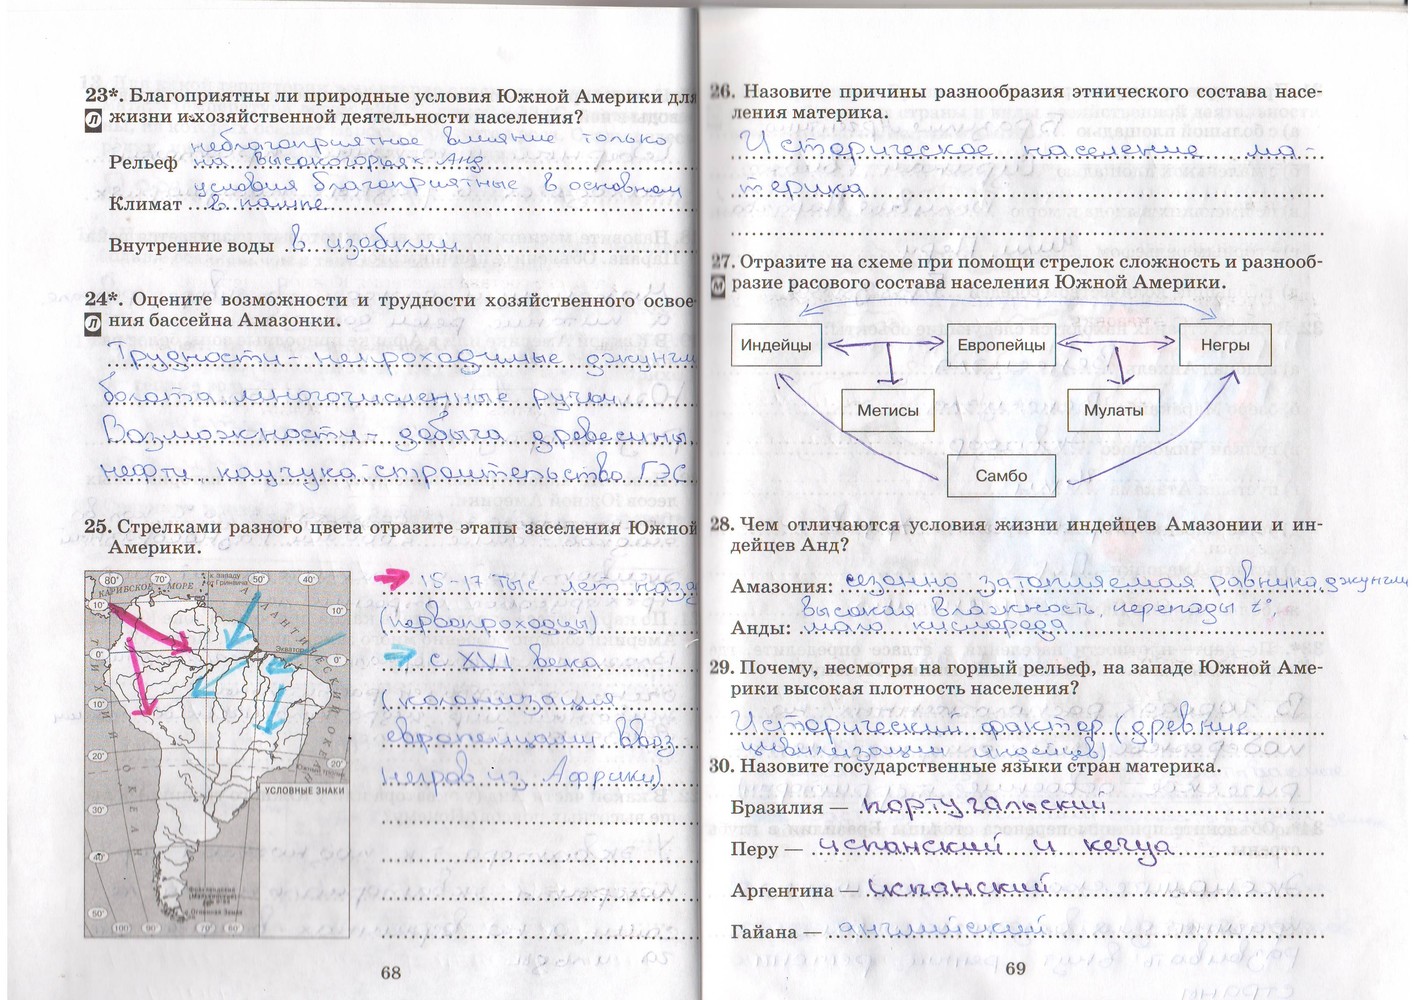 23*. Благоприятны ли природные условия Южной Америки для
Л жизни и хозяйственной деятельности населения?
неблагоприятное влияние только
Рельеф на высокогорьях Анд
условия благоприятные в основном
Климат в пампе
Внутренние воды в изобилии
24*. Оцените возможности и трудности хозяйственного освое-
Л ния бассейна Амазонки.
Трудности - непроходимые джунгли
болота многочисленные ручьи
Возможности - добыча древесины,
нефти каучука строительство ГЭС
25. Стрелками разного цвета отразите этапы заселения Южной
Америки.
80° 70° к западу от Гринвича 50° 40°
КАРИБСКОЕ МОРЕ
АТЛАНТИЧЕСКИЙ ОКЕАН
ТИХИЙ ОКЕАН
10° 10°
Экватор
0° 0°
10° 10°
20° 20°
УСЛОВНЫЕ ЗНАКИ
30°
40°
Фолклендские
(Мальвинские)
о. Огненная Земля
50° 100° 90° 70° 60°
15-17 тыс лет наза
(первопроходцы)
с XVII века
(колонизация
европейцами ввоз
негров из Африки)
68
26. Назовите причины разнообразия этнического состава насе-
ления материка.
Историческое население ма-
терика
27. Отразите на схеме при помощи стрелок сложность и разнооб-
М разие расового состава населения Южной Америки.
Индейцы Европейцы Негры
Метисы Мулаты
Самбо
28. Чем отличаются условия жизни индейцев Амазонии и ин-
дейцев Анд?
Амазония: сезонно затопляемая равнина, джунгли
высокая влажность, перепады t°,
Анды: мало кислорода
29. Почему, несмотря на горный рельеф, на западе Южной Аме-
рики высокая плотность населения?
Исторический фактор (древние
цивилизации индейцев)
30. Назовите государственные языки стран материка.
Бразилия — португальский
Перу — испанский и кечуа
Аргентина — испанский
Гайана — английский
69